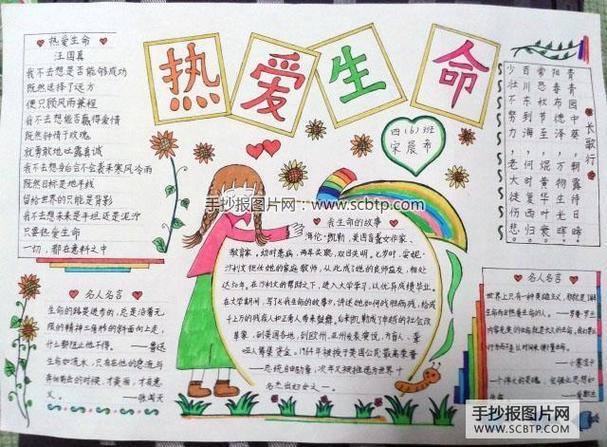 热爱生命
热爱生命
汪国真
我不去想是否能够成功
既然选择了远方
便只顾风雨兼程
我不去想能否赢得爱情
既然钟情于玫瑰
就勇敢地吐露真诚
我不去想身后会不会袭来寒风冷雨
既然目标是地平线
留给世界的只能是背影
我不去想未来是平坦还是泥泞
只要热爱生命
一切，都在意料之中
四（6）班
宋晨希
长歌行
青青园中葵
朝露待日晞
阳春布德泽
万物生光辉
常恐秋节至
焜黄华叶衰
百川东到海
何时复西归
少壮不努力
老大徒伤悲
手抄报图片网：www.scbtp.com
我生命的故事
海伦·凯勒，美国盲聋女作家、
教育家，幼时患病，两耳失聪，双目失明，七岁时，安妮·
沙利文担任她的家庭教师，从此成了她的良师益友，相处
达50年。在沙利文的帮助下，进入大学学习，以优异成绩毕业。
在大学期间，写了《我生命的故事》，讲述她如何战胜病残，给成
千上万的残疾人和正常人带来鼓舞。
名人名言
生命的路是进步的，总是沿着无
限的精神三角形的斜面向上走，
什么都阻止他不得。
——鲁迅
生命如流水，只有在他的急流与
奔向前去的时候，才美丽，才有意义。
——张闻天
名人名言
——罗曼·罗兰
——小塞涅卡
手抄报图片网
WWW.SCBTP.COM